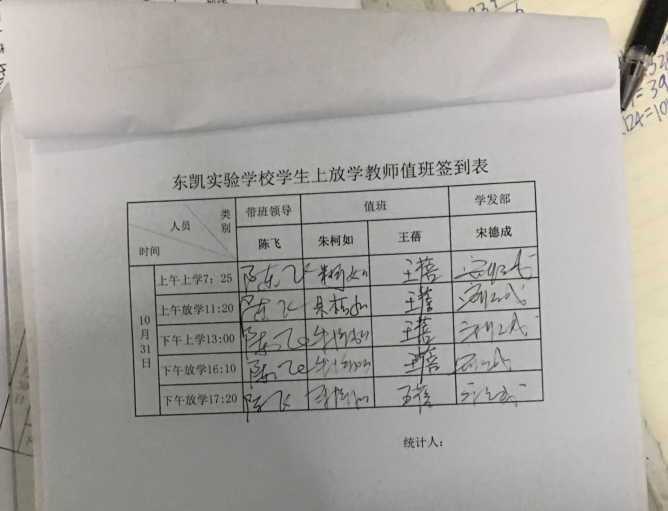 东凯实验学校学生上放学教师值班签到表
类别 人员 时间 带班领导 值班 学发部
陈飞 朱柯如 王蓓 宋德成
10月31日
上午上学7:25 陈飞 朱柯如 王蓓 宋德成
上午放学11:20 陈飞 朱柯如 王蓓 宋德成
下午上学13:00 陈飞 朱柯如 王蓓 宋德成
下午放学16:10 陈飞 朱柯如 王蓓 宋德成
下午放学17:20 陈飞 朱柯如 王蓓 宋德成
统计人: